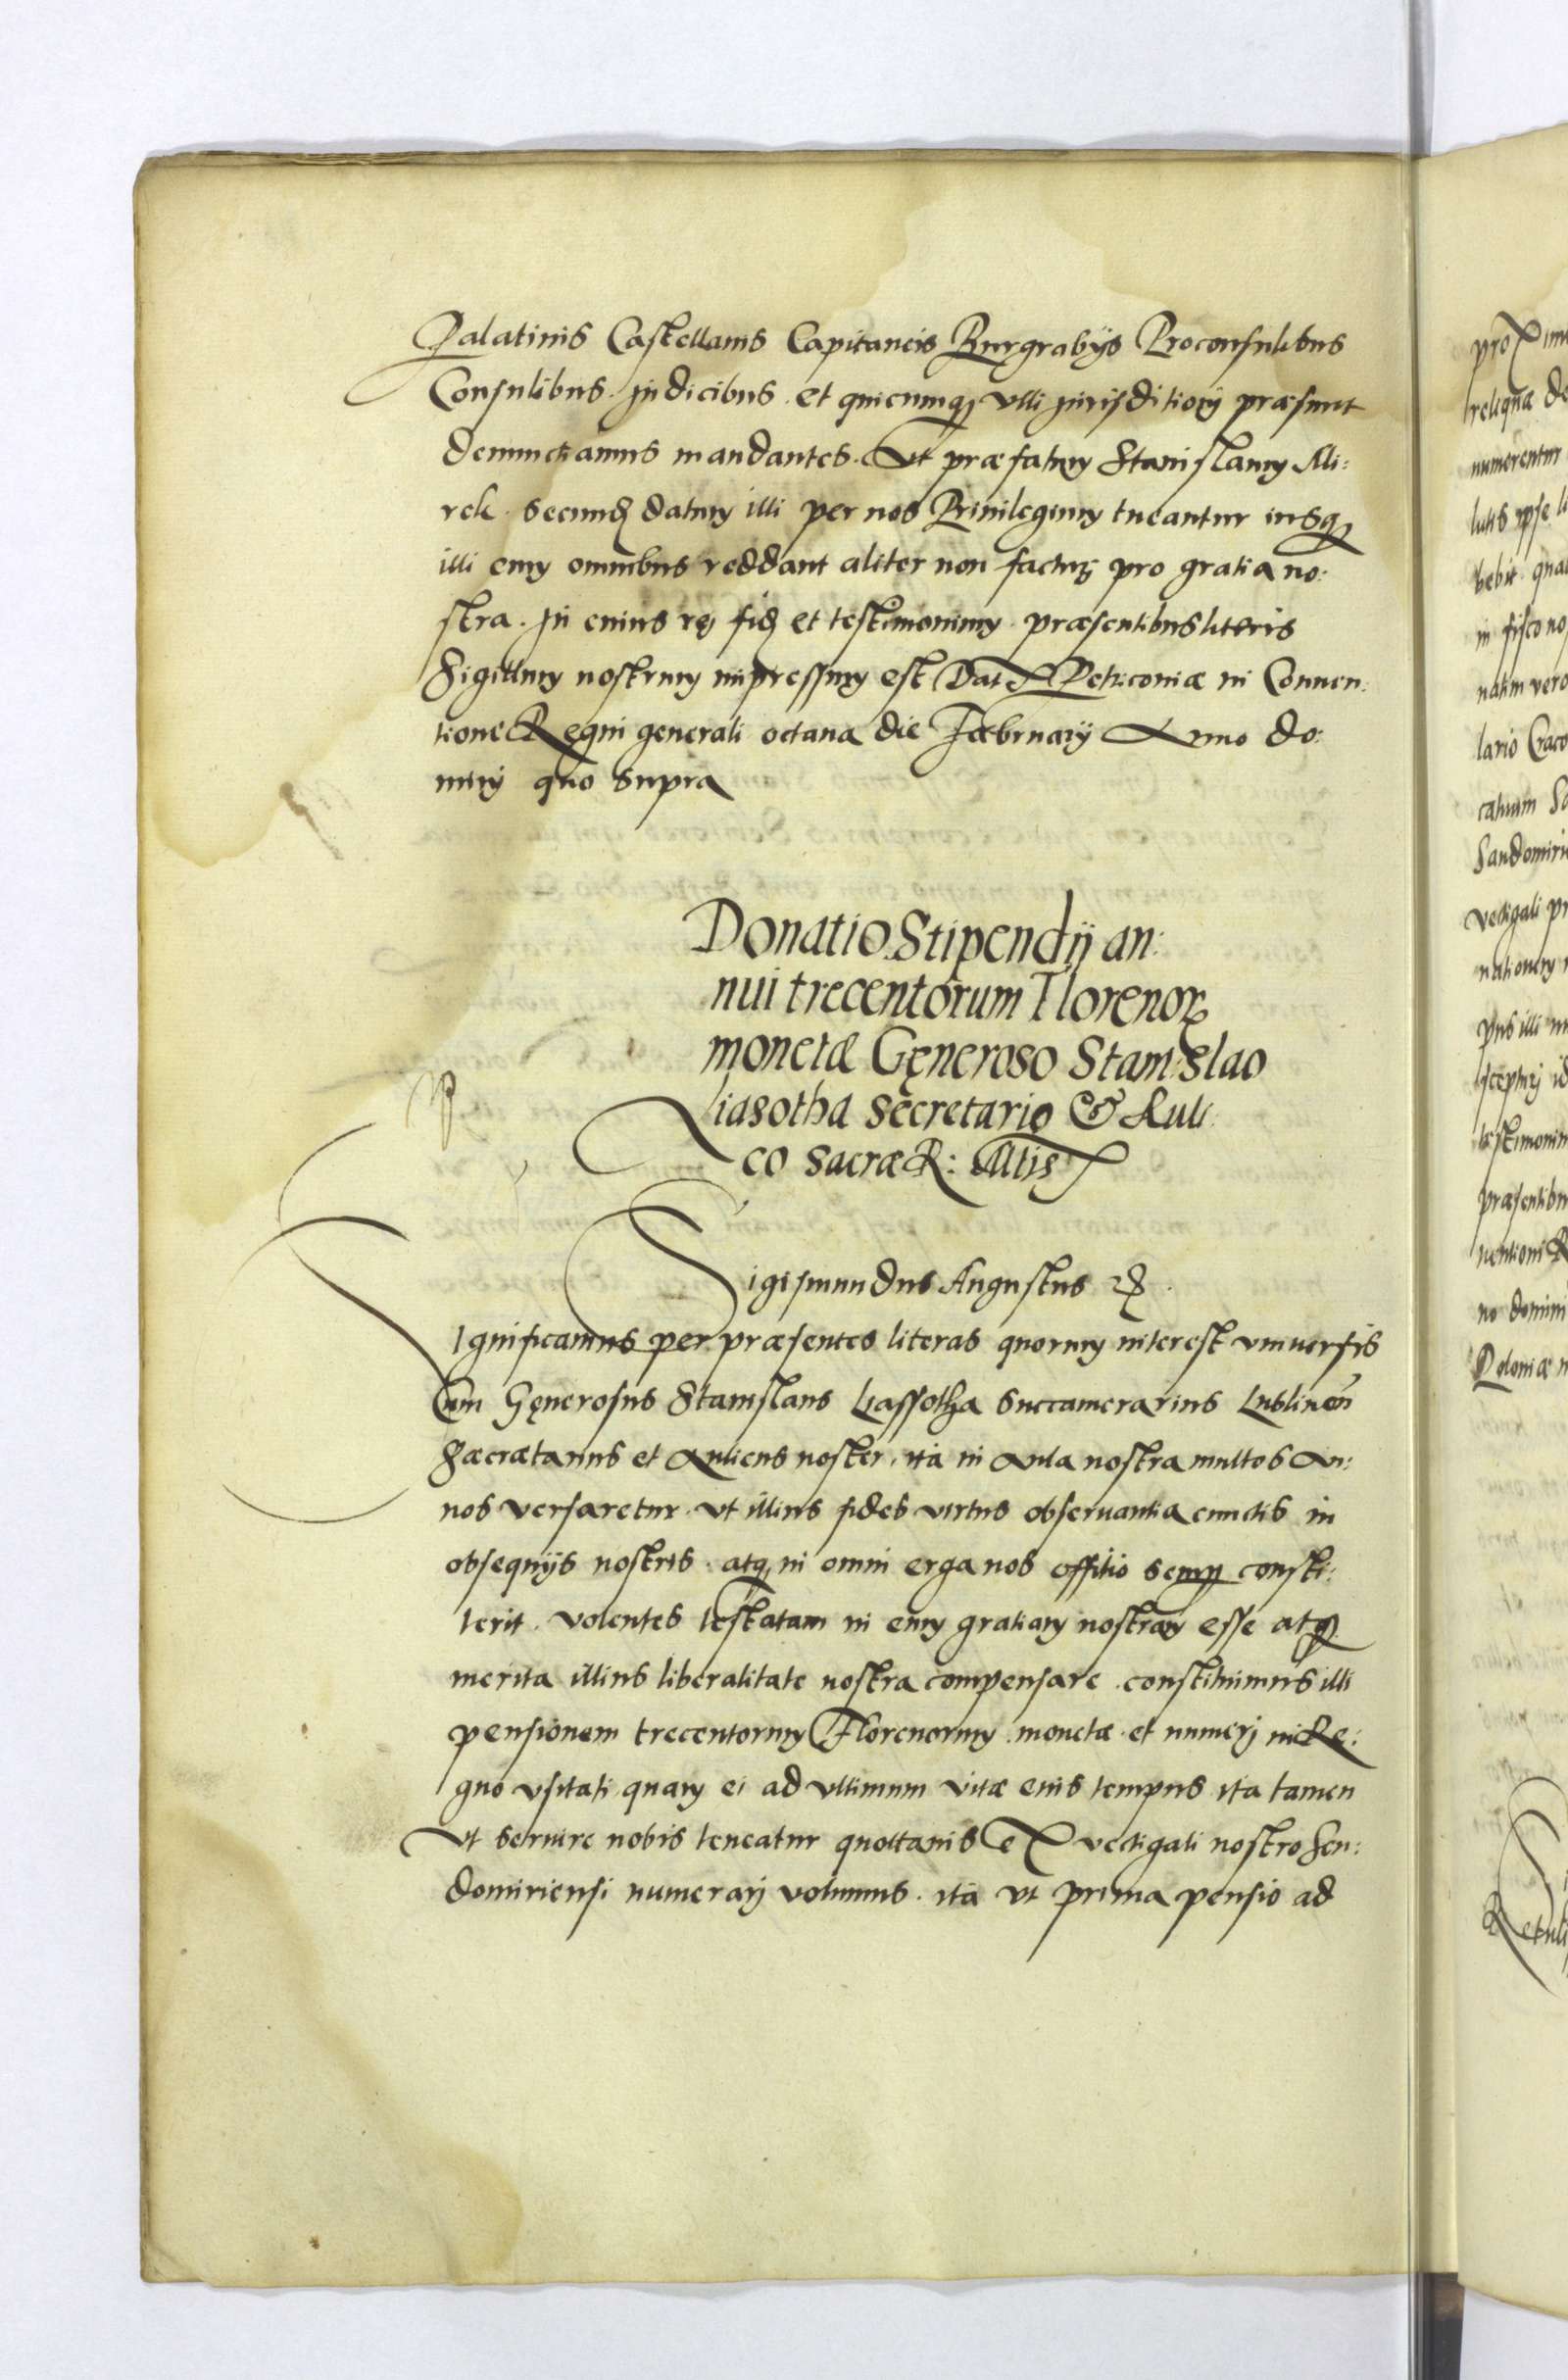 Palatinis Castellanis Capitaneis Burgrabijs Proconsulibus
Consulibus. Judicibus. et quicunq₃ vlli Jurisditionj præsunt
denunctiamus mandantes. Vt præfatum Stanislaum Mi:
rek. secund datum illi per nos Priuilegium tueantur iusq₃
illi cum omnibus reddant aliter non factur pro gratia no:
stra. In cuius rej fid et testimonium præsentibus literis
Sigillum nostrum impressum est Dat Petricouiæ in Conuen:
tione Regni generali octaua die Fæbruarij Anno do:
minj quo supra
Donatio Stipendij an:
nui trecentorum Florenor
monetæ Gęneroso Stanislao
Liasotha secretario & Auli
co sacræ R: Mtis
Sigismundus Augustus
Ignificamus per præsentes literas quorum interest vniuersis
Cum Gęnerosus Stanislaus Liassotha succamerarius Lublinen
Sæcrætarius et Aulicus noster, ita in Aula nostra multos An:
nos versaretur. vt illius fides virtus obseruantia cunctis in
obsequijs nostris. atq₃ in omni erga nos offitio semp consti:
terit. volentes testatam in eum gratiam nostram esse atq₃
merita illius liberalitate nostra compensare. constituimus illi
pensionem trecentorum Florenorum. monetæ. et numerj in Re:
gno vsitati quam ei ad vltimum vitæ eius tempus ita tamen
vt seruire nobis teneatur quottanis ex vectigali nostro Sen:
domiriensi numerarj volumus. ita vt prima pensio ad
proxim
reliquæ de
numerentur
lutis ipse li
bebit qua
in fisco no
natim vero
lario Craco
catuum Sa
Sandomiri
vectigali pr
nationem
pus illi
testimoniu
præsentibu
uentioni R
no domini
Poloniæ
Retuli